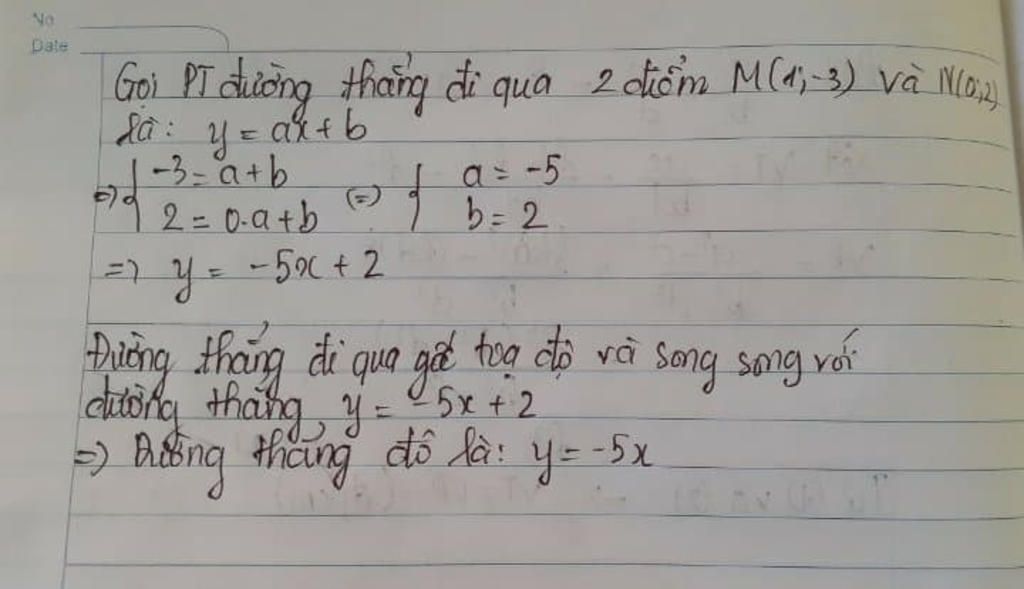 No
Date
Gọi PT đường thẳng đi qua 2 điểm M(1;-3) và N(0;2)
là: y = ax + b
=> { -3 = a + b (=) { a = -5
2 = 0.a + b b = 2
=> y = -5x + 2
Đường thẳng đi qua gốc toạ độ và song song với
đường thẳng y = -5x + 2
=> Đường thẳng đó là: y = -5x